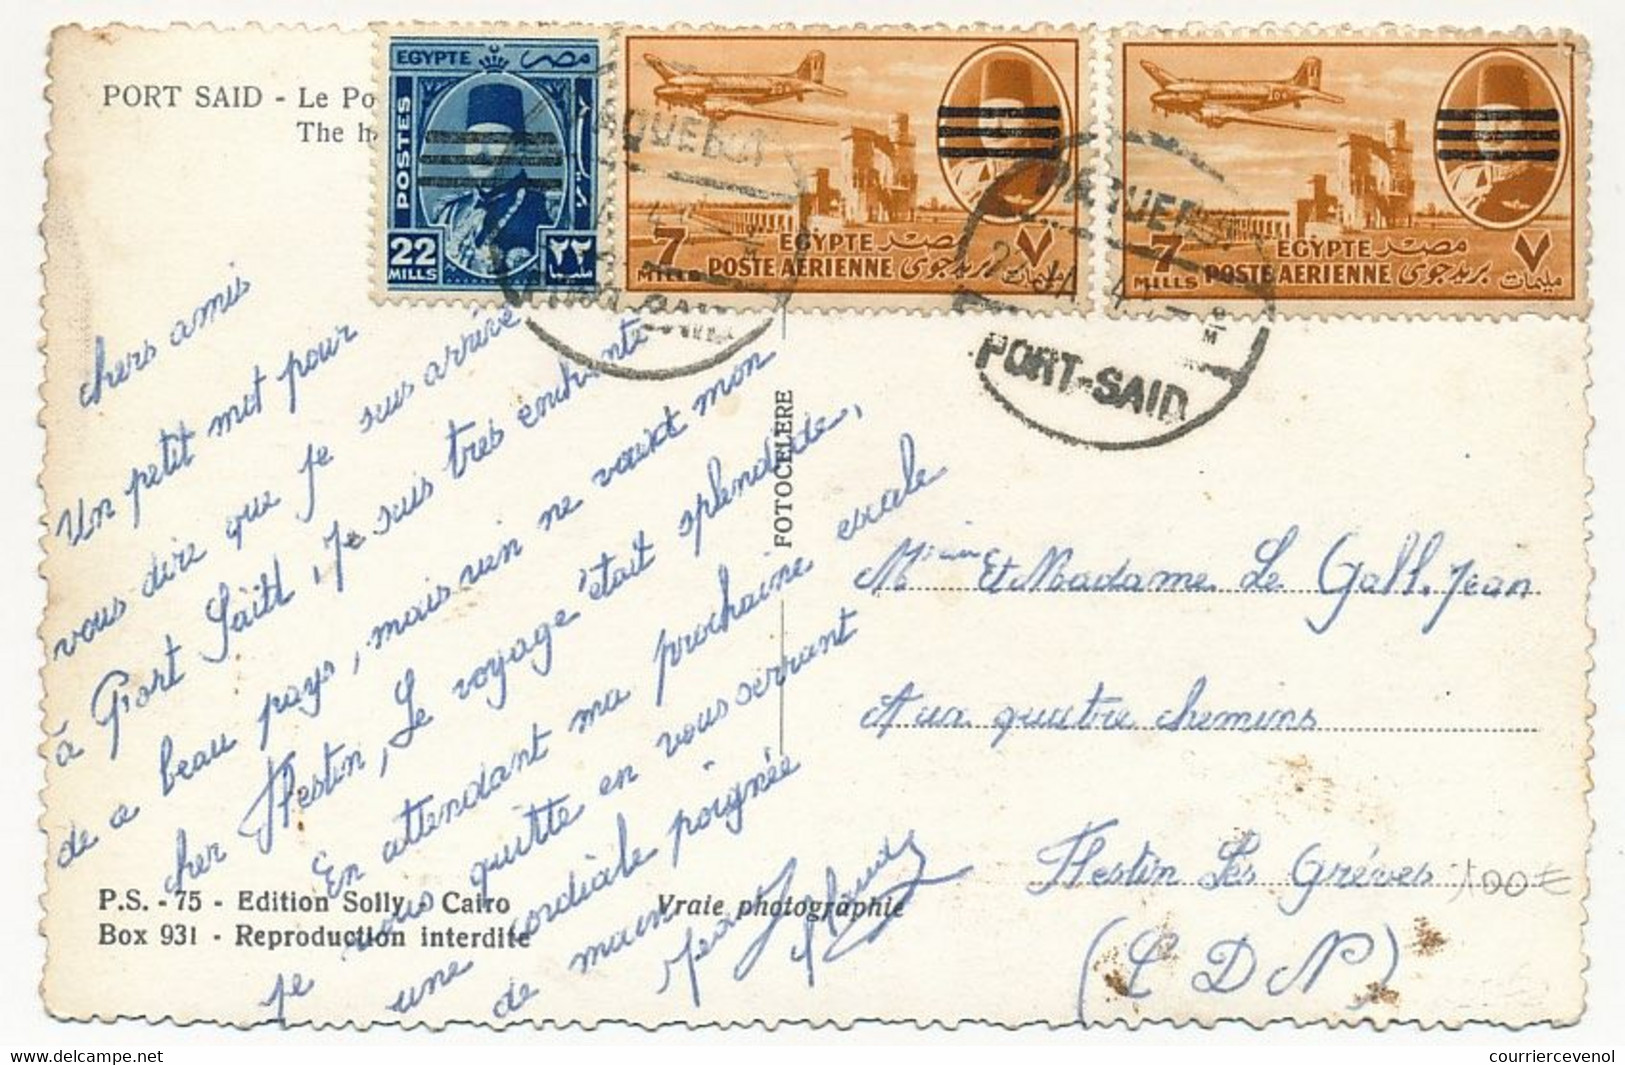 PORT SAID - Le Po
The h
EGYPTE مصر
POSTES
22 MILLS ٢٢
7 MILLS EGYPTE مصر ٧ مليمات
POSTE AERIENNE بريد جوى
7 MILLS EGYPTE مصر ٧ مليمات
POSTE AERIENNE بريد جوى
PAQUEBOT
PAQUEBOT
PORT-SAID
chers amis
Un petit mot pour
vous dire que je suis arrivé
à Port Saïd, Je suis très enchanté
de ce beau pays, mais rien ne vaut mon
cher Plestin, Le voyage était splendide,
En attendant ma prochaine escale
je vous quitte en vous serrant
une cordiale poignée
de main
Jean
FOTOCELERE
Et Madame Le Gall. Jean
Aux quatre chemins
Plestin Les Grèves
(C D N)
100€
P.S. - 75 - Edition Solly, Cairo
Box 931 - Reproduction interdite
Vraie photographie
(c) Delcampe.net
courriercevenol